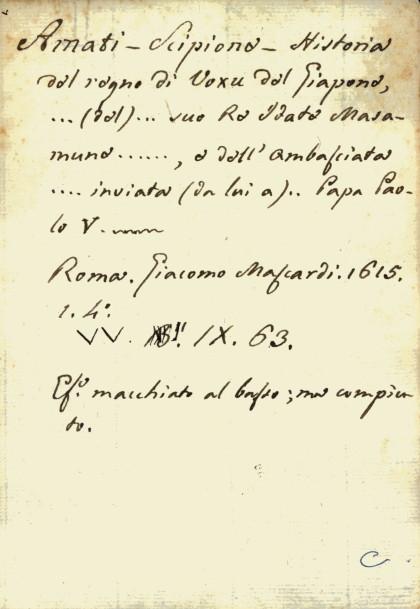 Amati - Scipione - Historia
del regno di Voxu del Giapone,
... (del) ... suo Re Idate Masa-
mune ......, e dell' Ambasciata
.... inviata (da lui a) .. Papa Pao-
lo V.
Roma. Giacomo Mascardi. 1615.
1. 4°.
VV. IX. 63.
Es.º macchiato al basso; ma compiu-
to.
C